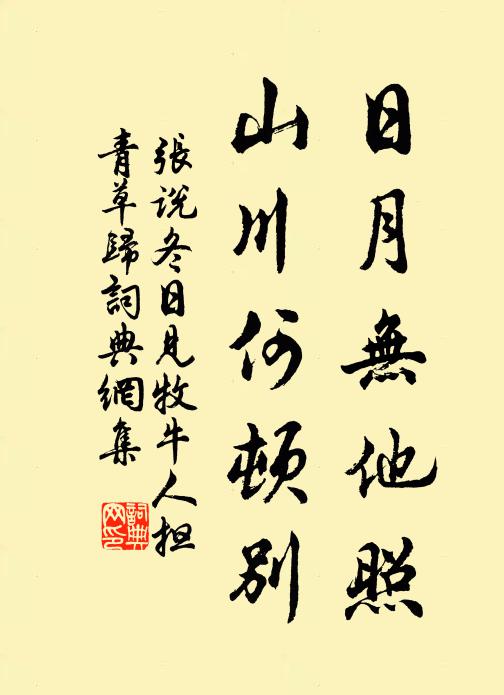 日月無他照
山川何頓別
張説冬日見牧牛人担
青草歸詞典網集
詞典
网印